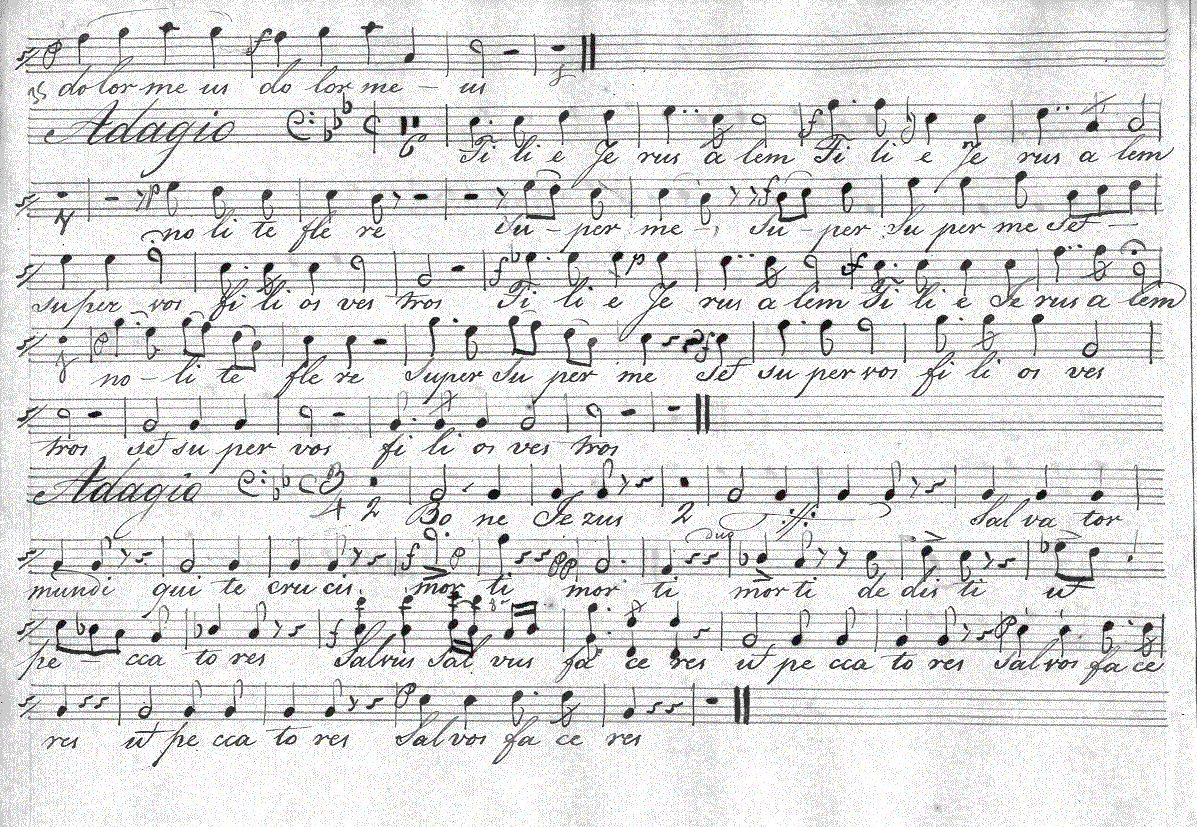 35 do lor me us do lor me - us
Adagio 6
Fi li e Je rus a lem Fi li e Je rus a lem
no li te fle re su - per me -, su - per su per me set -
super vos fi li os ves tros Fi li e Je rus a lem Fi li e Je rus a lem
no - li te fle re super su per me set su per vos fi li os ves
tros set su per vos fi li os ves tros
Adagio 3 4 2 Bo ne Jezus 2 Sal va tor
duo
mundi qui te cru cis mor ti mor ti mor ti de dis ti ut
pe - cca to res Salvus Sal vus fa ce res ut pe cca to res Sal vos fa ce
res ut pe cca to res Sal vos fa ce res